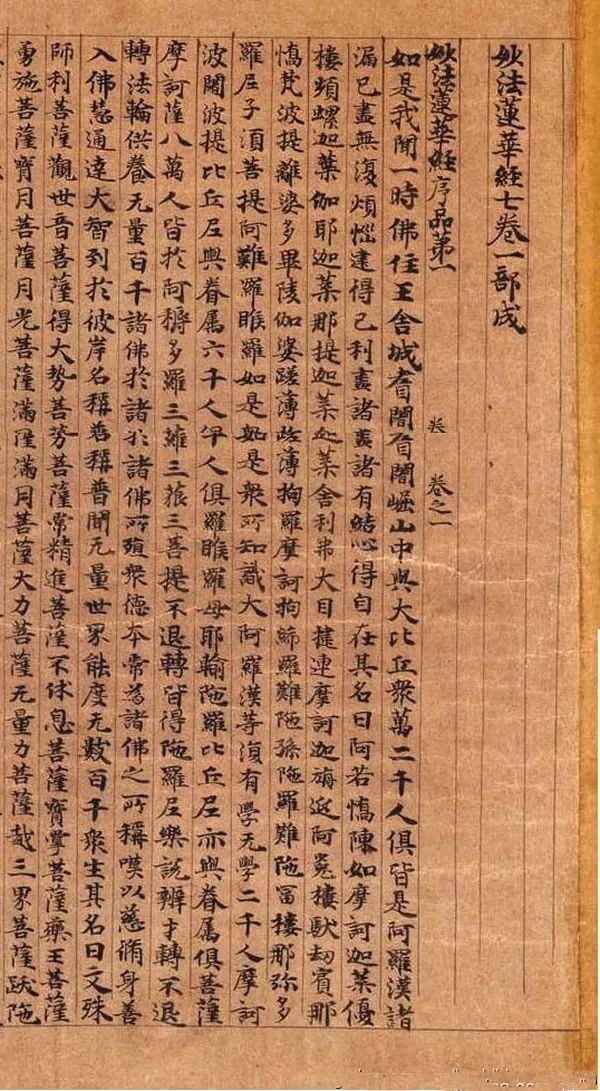 妙法蓮華経七卷一部成
妙法蓮華経序品第一 卷之一
如是我聞一時佛住王舍城耆闍耆闍崛山中與大比丘衆萬二千人俱皆是阿羅漢諸
漏已盡無復煩惱逮得己利盡諸盡諸有結心得自在其名曰阿若憍陳如摩訶迦葉優
樓頻螺迦葉伽耶迦葉那提迦葉迦葉舍利弗大目揵連摩訶迦旃延阿㝹樓馱劫賓那
憍梵波提離婆多畢陵伽婆蹉薄拘薄拘羅摩訶拘絺羅難陁孫陁羅難陁冨樓那弥多
羅尼子湏菩提阿難羅睺羅如是如是衆所知識大阿羅漢等復有學无學二千人摩訶
波闍波提比丘尼與眷属六千人千人俱羅睺羅母耶輸陁羅比丘尼亦與眷属俱菩薩
摩訶薩八萬人皆於阿耨多羅三藐三菩提不退轉皆得陁羅尼樂説辯才轉不退
轉法輪供養无量百千諸佛於諸於諸佛所殖衆德本常為諸佛之所稱嘆以慈脩身善
入佛慧通達大智到於彼岸名稱名稱普聞无量世界能度无數百千衆生其名曰文殊
師利菩薩觀世音菩薩得大勢菩薩常精進菩薩不休息菩薩寶掌菩薩藥王菩薩
勇施菩薩寶月菩薩月光菩薩滿月菩薩大力菩薩无量力菩薩越三界菩薩跋陁